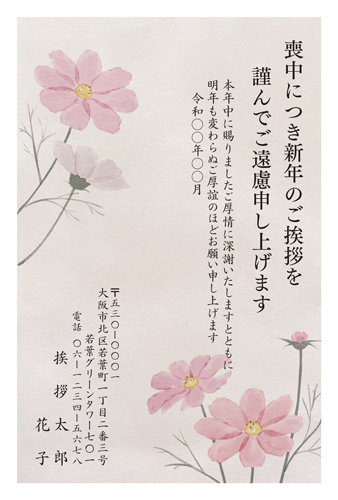 喪中につき新年のご挨拶を
謹んでご遠慮申し上げます
本年中に賜りましたご厚情に深謝いたしますとともに
明年も変わらぬご厚誼のほどお願い申し上げます
令和〇〇年〇〇月
〒五三〇-〇〇〇一
大阪市北区若葉町一丁目二番三号
若葉グリーンタワー七〇一
電話 〇六-一二三四-五六七八
挨拶 太郎
花子